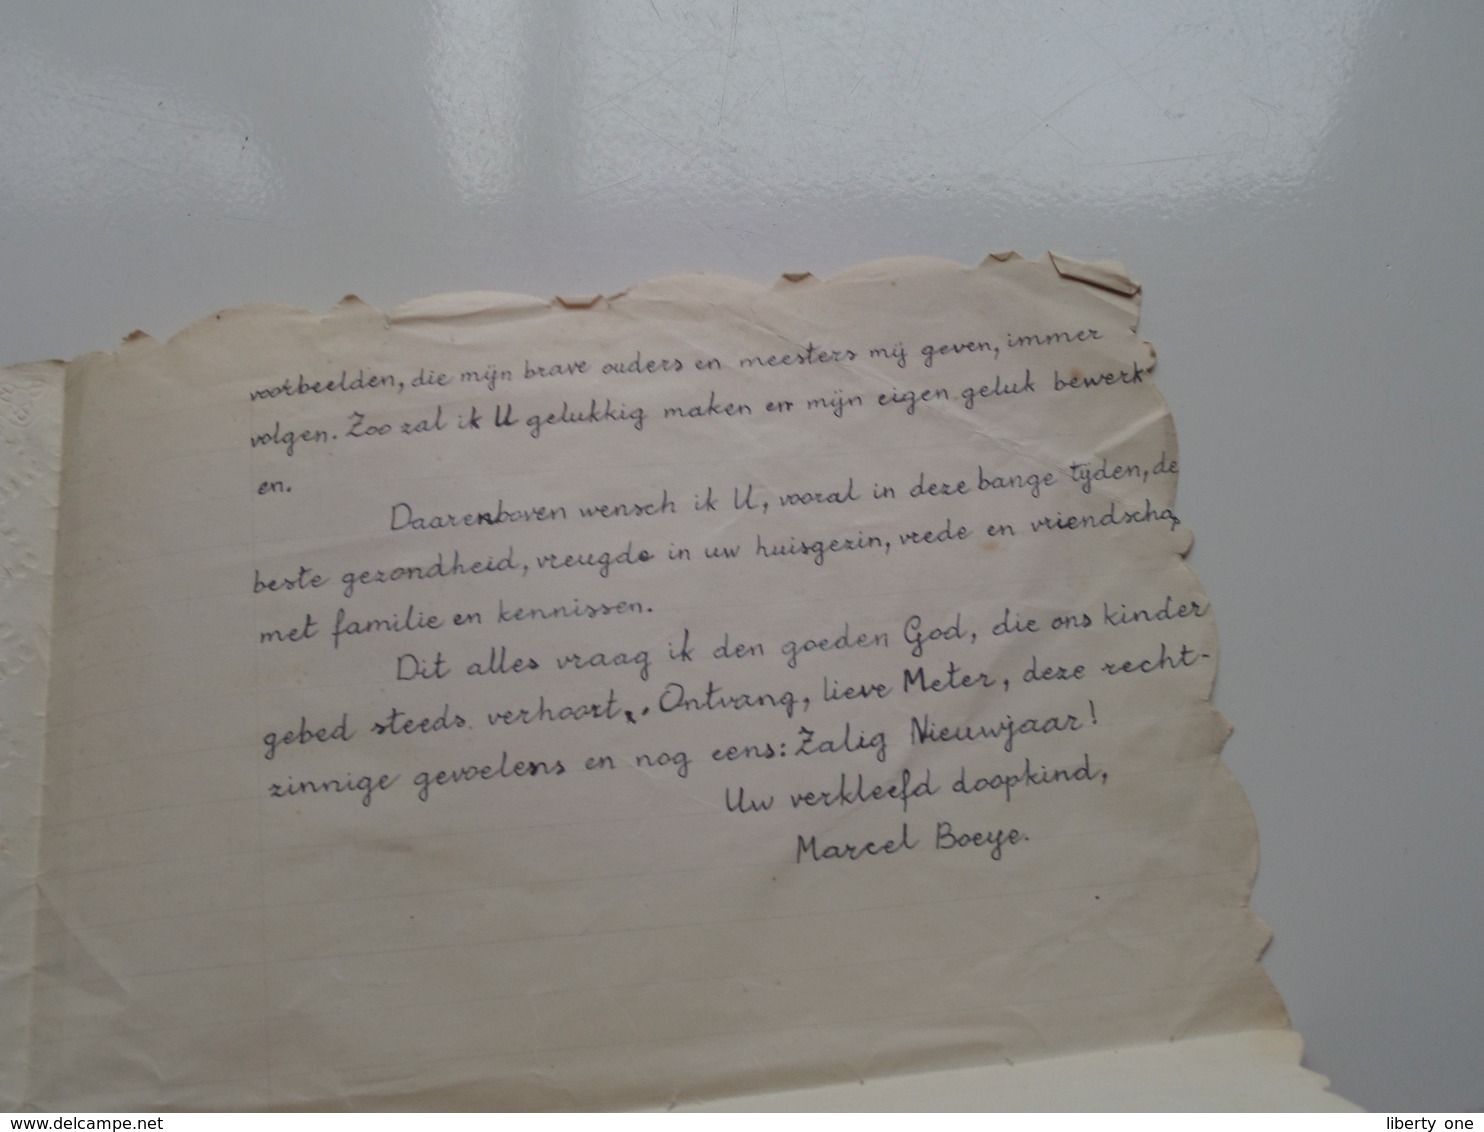 voorbeelden, die mijn brave ouders en meesters mij geven, immer
volgen. Zoo zal ik U gelukkig maken en mijn eigen geluk bewerk-
en.
Daarenboven wensch ik U, vooral in deze bange tijden, de
beste gezondheid, vreugde in uw huisgezin, vrede en vriendschap
met familie en kennissen.
Dit alles vraag ik den goeden God, die ons kinder
gebed steeds verhoort. Ontvang, lieve Meter, deze recht-
zinnige gevoelens en nog eens: Zalig Nieuwjaar!
Uw verkleefd doopkind,
Marcel Boeye.
delcampe.net
liberty one